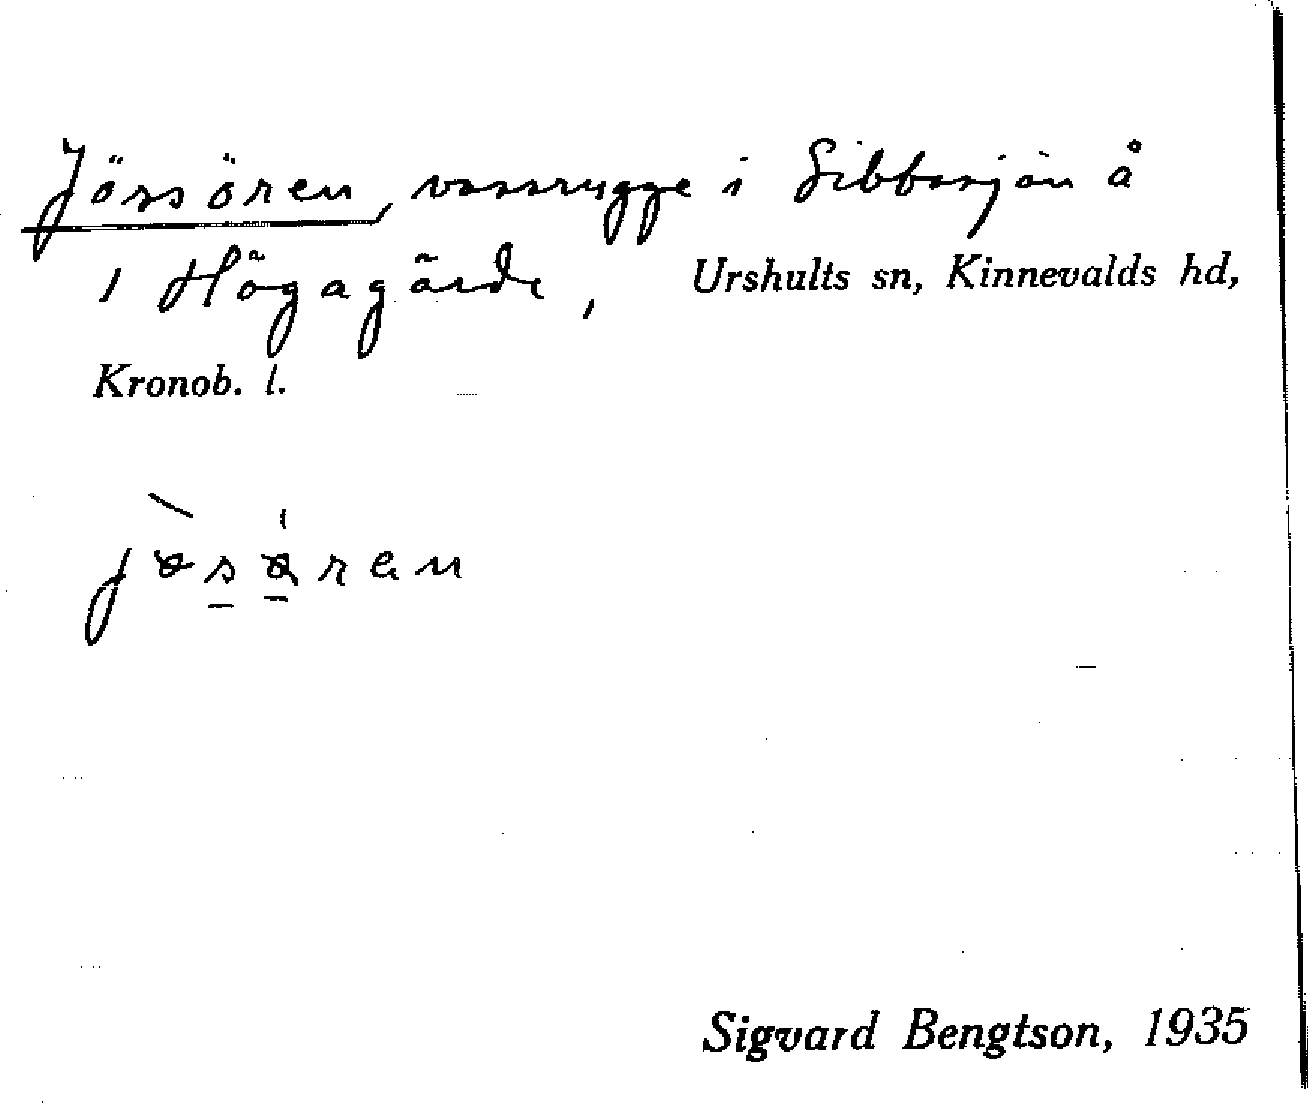 Jössören, vassrugge i Sibbasjön å
1 Högagärde, Urshults sn, Kinnevalds hd,
Kronob. l.
jøsøren
Sigvard Bengtson, 1935